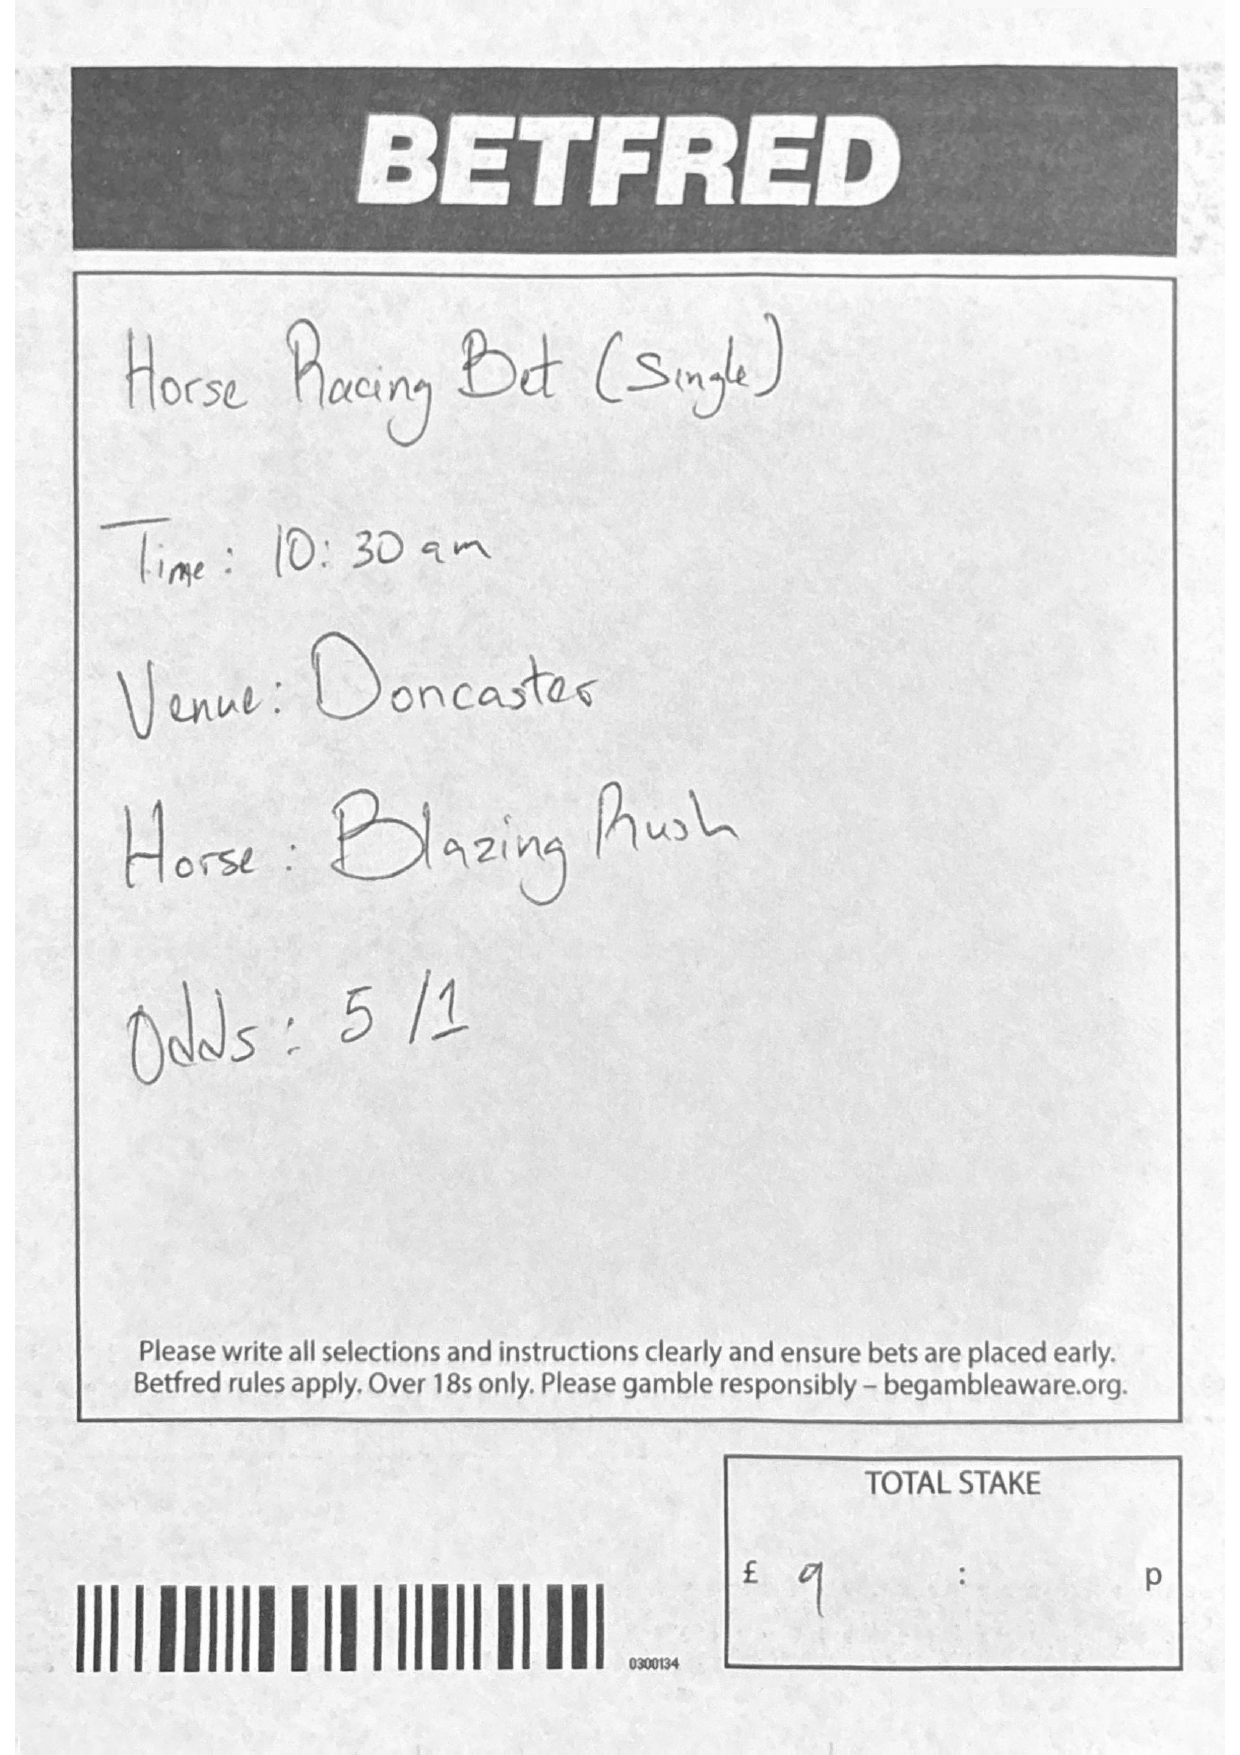 BETFRED
Horse Racing Bet (Single)
Time: 10:30 am
Venue: Doncaster
Horse: Blazing Rush
Odds: 5/1
Please write all selections and instructions clearly and ensure bets are placed early.
Betfred rules apply. Over 18s only. Please gamble responsibly – begambleaware.org.
TOTAL STAKE
£ 9 : p
0300134